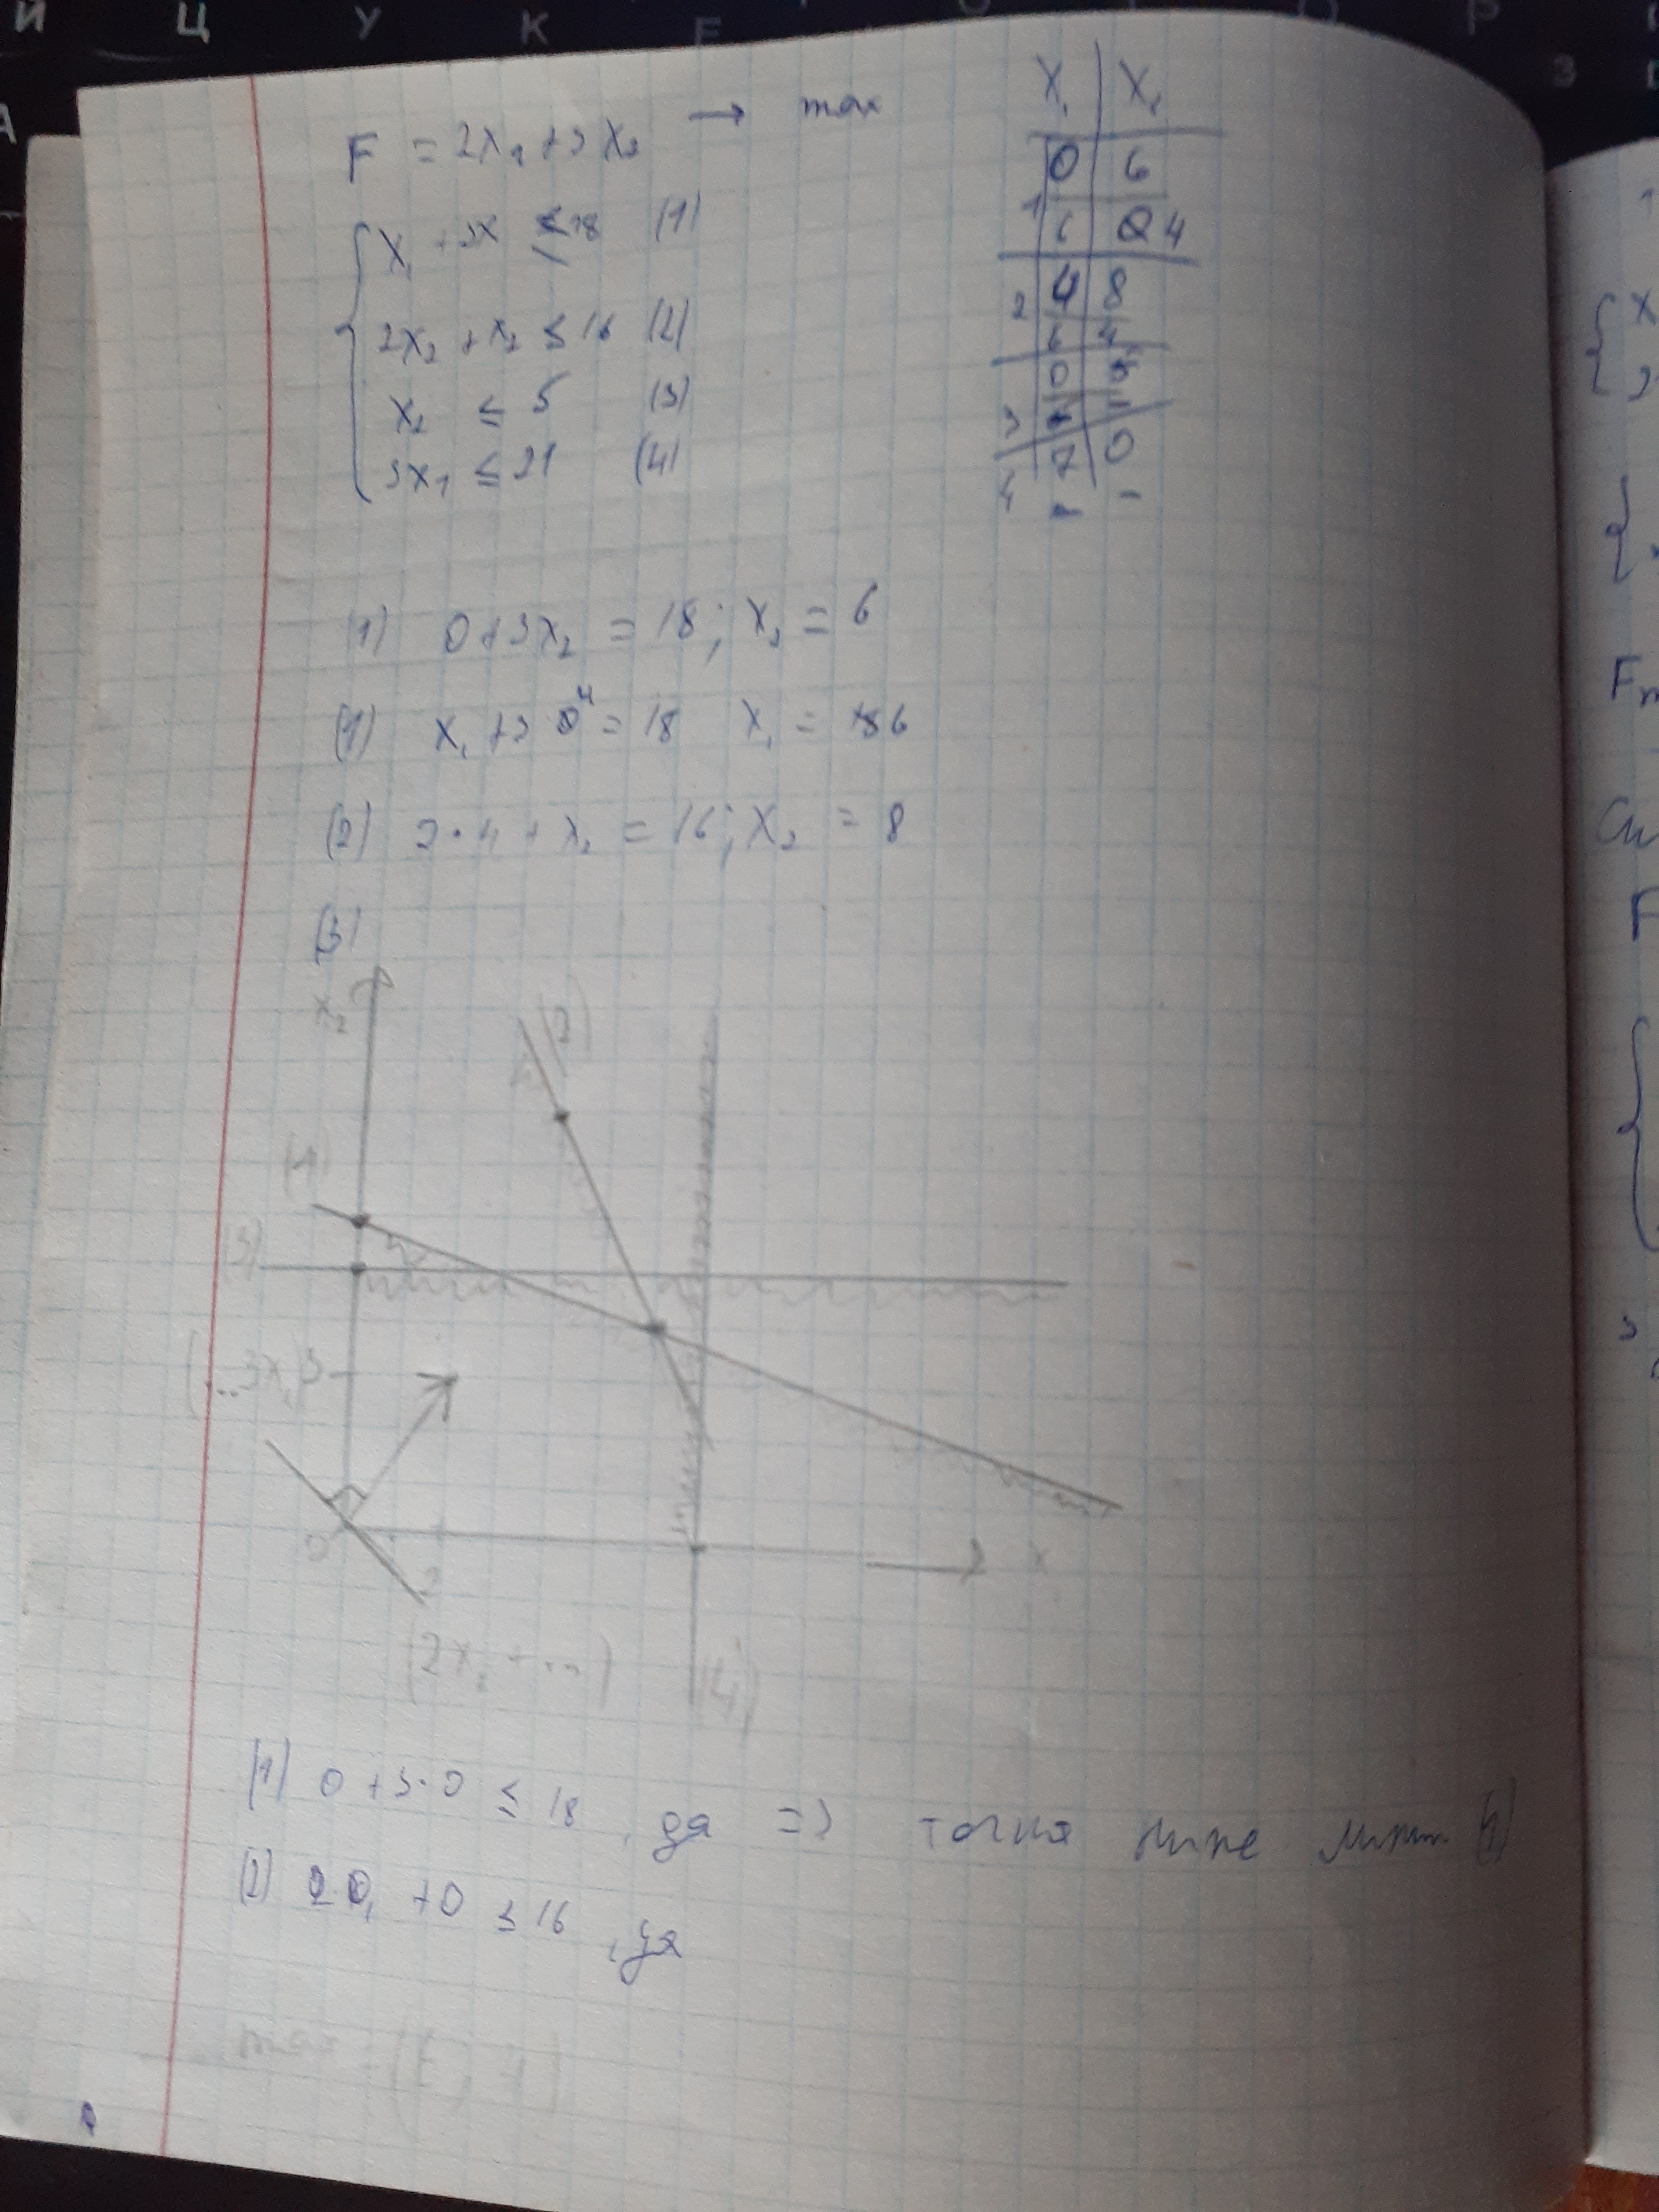 Й Ц У К Е
F = 2x₁ + 3x₂ → max
x₁ + 3x ≤ 18 (1)
2x₂ + x₂ ≤ 16 (2)
x₂ ≤ 5 (3)
3x₁ ≤ 21 (4)
X₁ | X₂
0 | 6
1 6 | 4
2 4 | 8
6 | 4
0 | 5
3 - | -
4 7 | 0
- | -
(1) 0 + 3x₂ = 18; x₂ = 6
(1) x₁ + 3 4 = 18 x₁ = 6
(2) 2·4 + x₂ = 16; x₂ = 8
(3)
x₂
(2)
(1)
(3)
(...3x₂) 3
0
2
x
(2x₁ + ...)
(4)
(1) 0 + 3·0 ≤ 18, да => точка ниже линии (1)
(2) 20, + 0 ≤ 16, да
max - (6; 4)